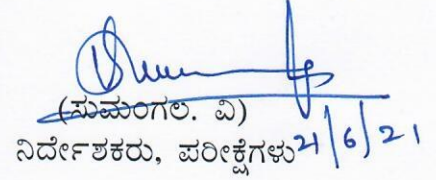 (ಸುಮಂಗಲ. ವಿ)
ನಿರ್ದೇಶಕರು, ಪರೀಕ್ಷೆಗಳು 21/6/21